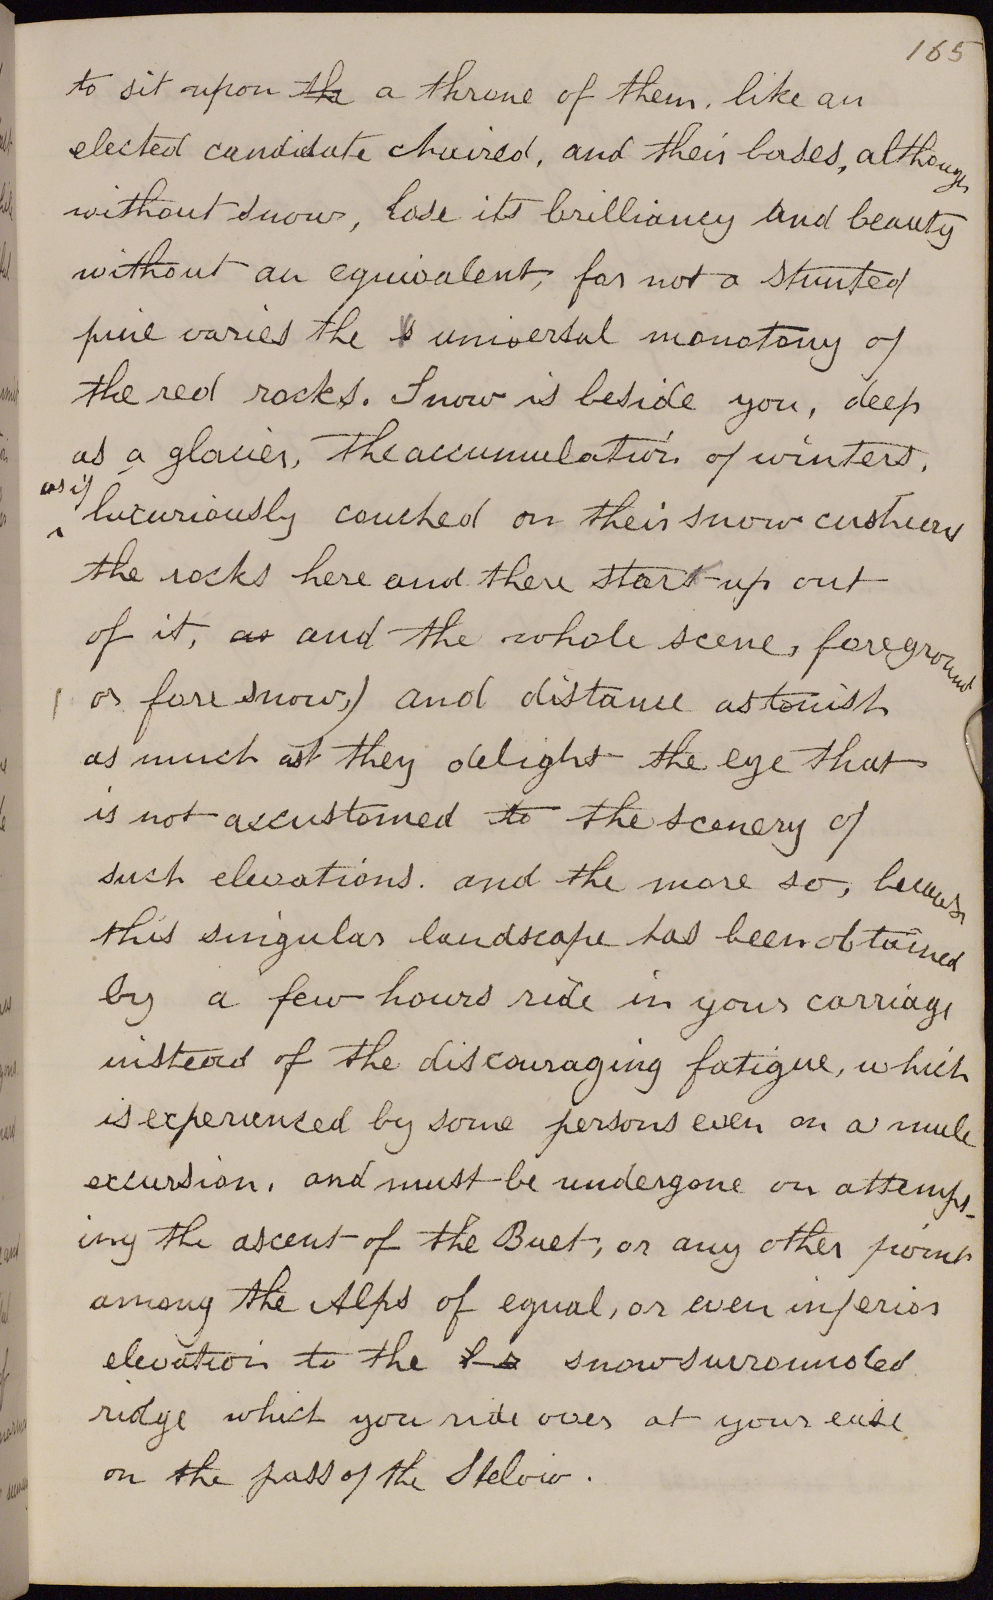 165
to sit upon the a throne of them, like an
elected candidate chaired, and their bases, although
without snow, lose its brilliancy and beauty
without an equivalent, for not a stunted
pine varies the s universal monotony of
the red rocks. Snow is beside you, deep
as a glacier, the accumulation of winters,
as if
luxuriously couched on their snow cushions
the rocks here and there start up out
of it, as and the whole scene, foreground
or fore snow,) and distance astonish
as much as they delight the eye that
is not accustomed to the scenery of
such elevations. and the more so, because
this singular landscape has been obtained
by a few hours ride in your carriage
instead of the discouraging fatigue, which
is experienced by some persons even on a mule
excursion, and must be undergone on attempt-
ing the ascent of the Buet, or any other point
among the Alps of equal, or even inferior
elevation to the snow surrounded
ridge which you ride over at your ease
on the pass of the Stelvio.